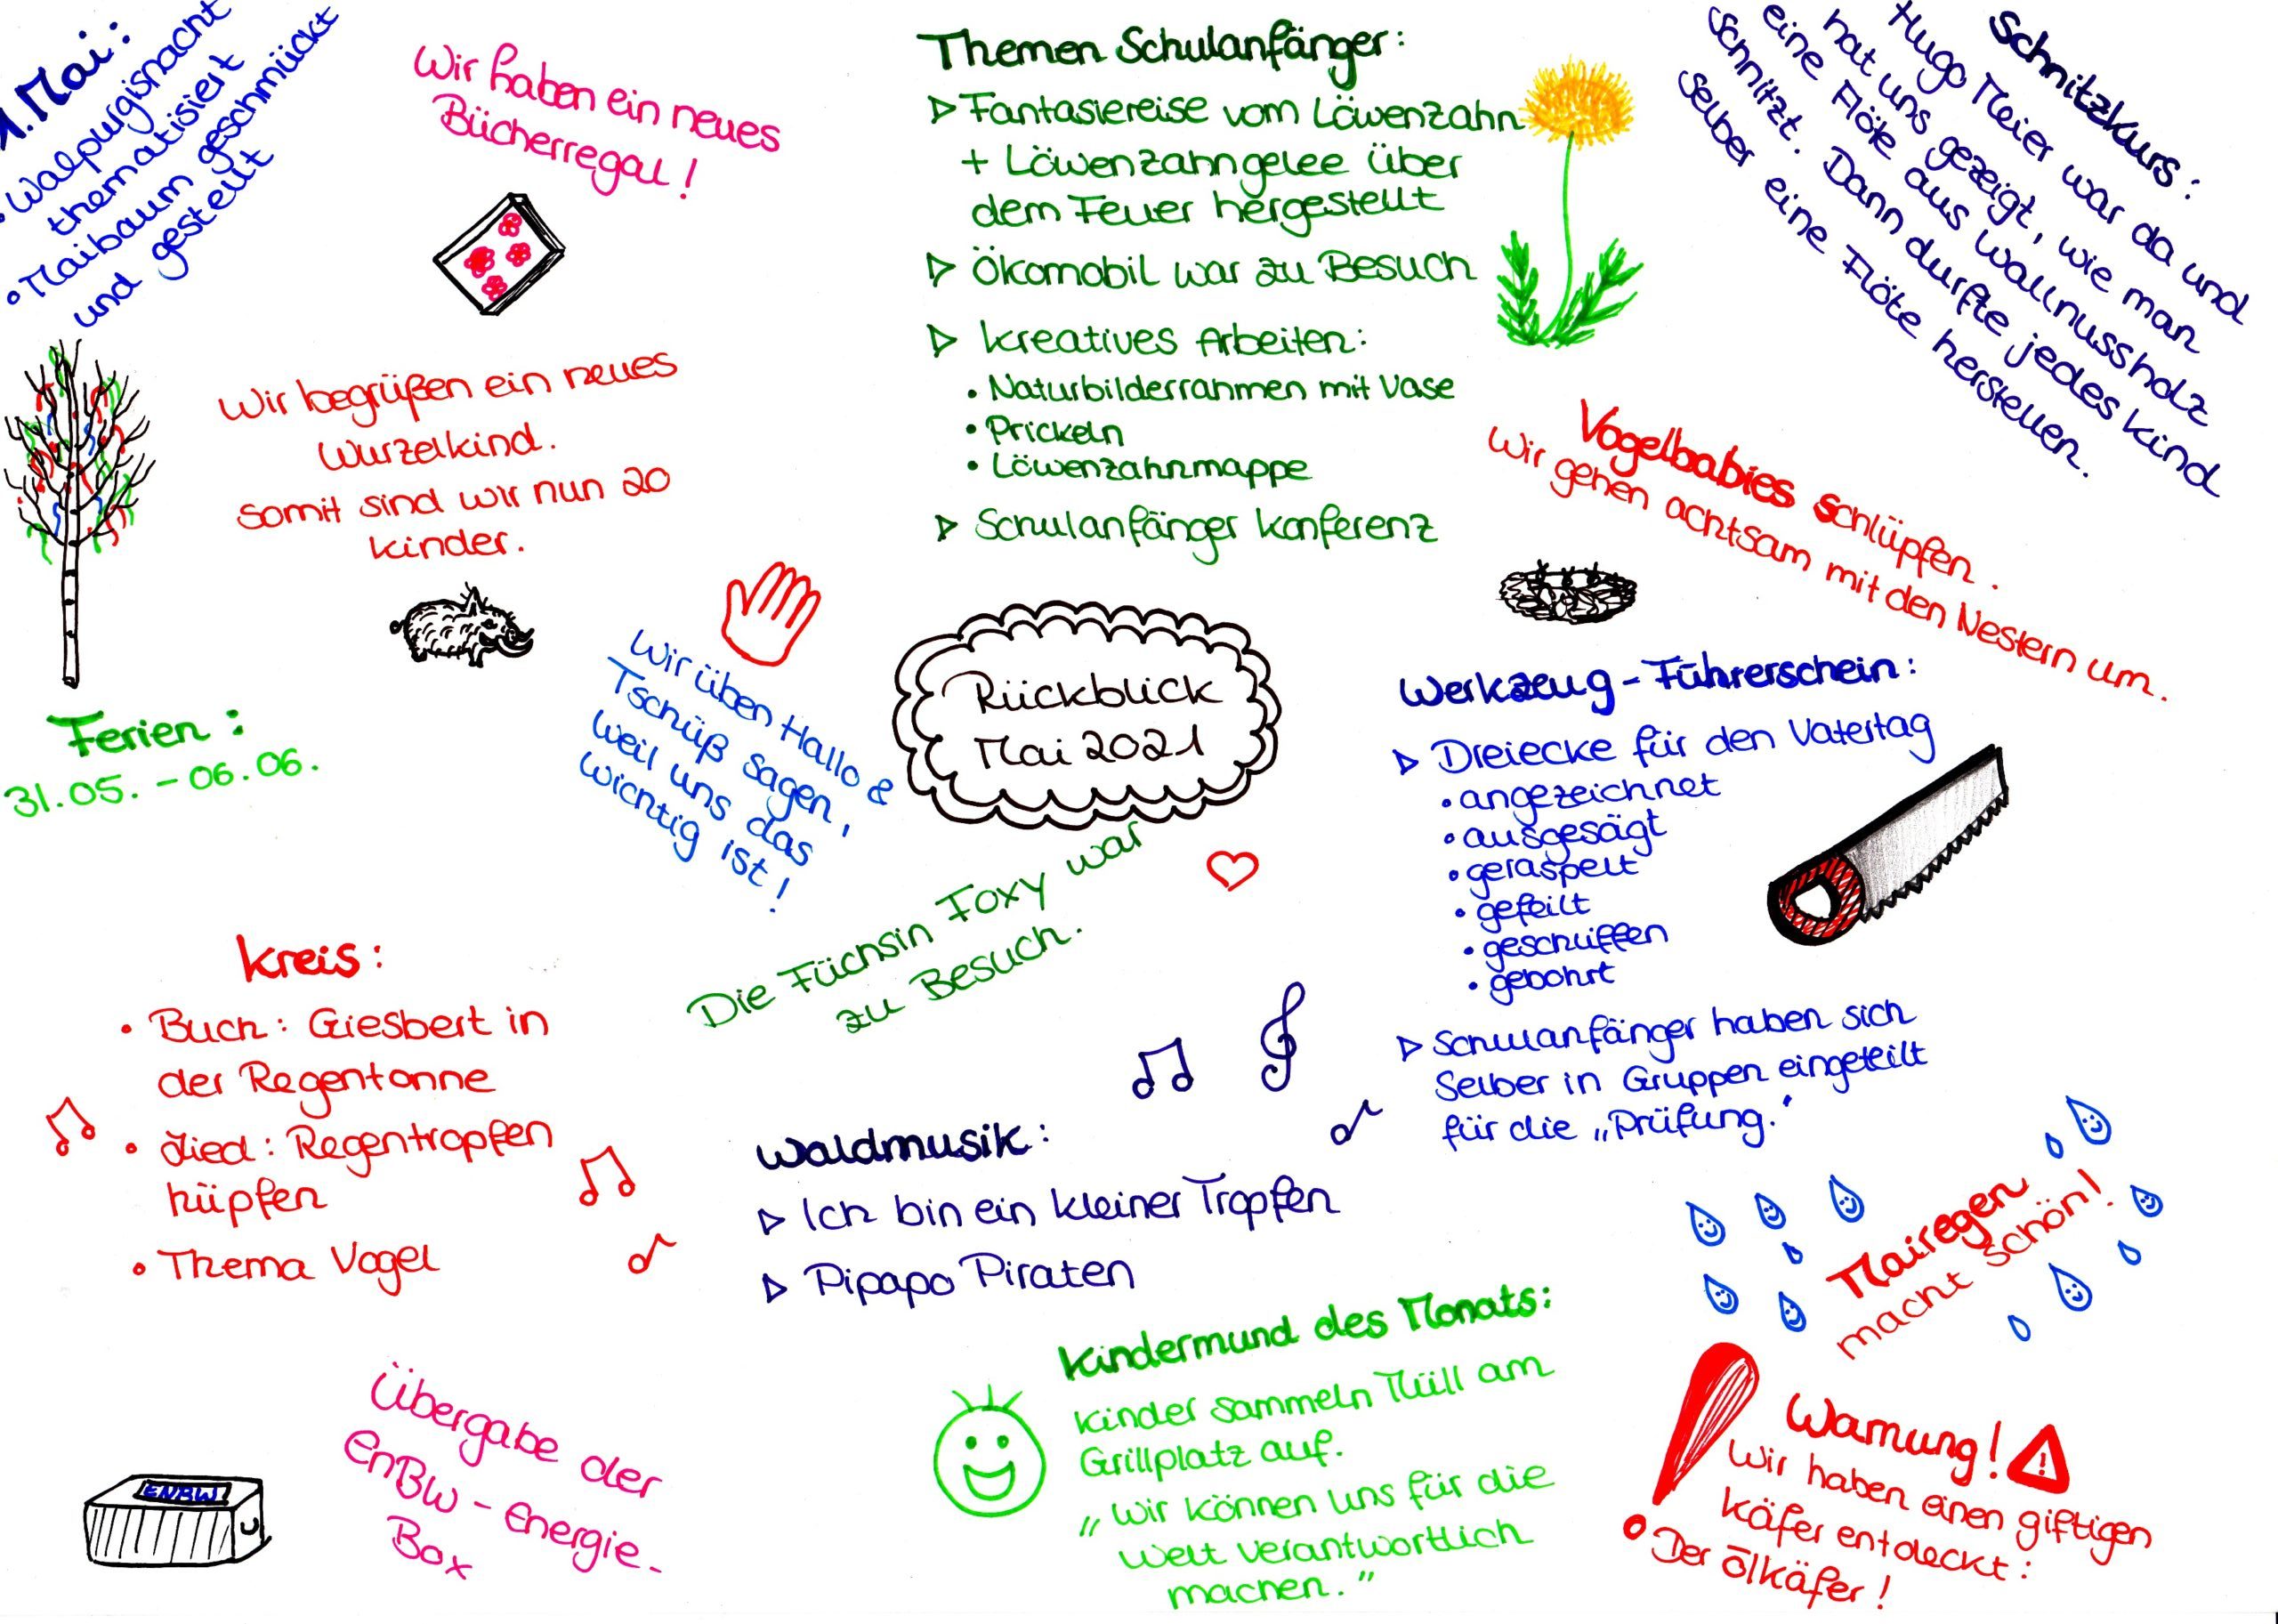 1. Mai:
• Walpurgisnacht
thematisiert
• Maibaum geschmückt
und gestellt
Wir haben ein neues
Bücherregal!
Themen Schulanfänger:
▷ Fantasiereise vom Löwenzahn
+ Löwenzahngelee über
dem Feuer hergestellt
▷ Ökomobil war zu Besuch
▷ kreatives Arbeiten:
• Naturbilderrahmen mit Vase
• Prickeln
• Löwenzahnmappe
▷ Schulanfänger Konferenz
Schnitzkurs:
Hugo Meier war da und
hat uns gezeigt, wie man
eine Flöte aus Wallnussholz
schnitzt. Dann durfte jedes Kind
selber eine Flöte herstellen.
Wir begrüßen ein neues
Wurzelkind.
Somit sind wir nun 20
Kinder.
Vogelbabies schlüpfen.
Wir gehen achtsam mit den Nestern um.
Wir üben Hallo &
Tschüß sagen,
weil uns das
wichtig ist!
Rückblick
Mai 2021
Werkzeug-Führerschein:
▷ Dreiecke für den Vatertag
• angezeichnet
• ausgesägt
• geraspelt
• gefeilt
• geschliffen
• gebohrt
▷ Schulanfänger haben sich
selber in Gruppen eingeteilt
für die „Prüfung."
Ferien:
31.05. - 06.06.
Die Füchsin Foxy war
zu Besuch.
Kreis:
• Buch: Giesbert in
der Regentonne
• Lied: Regentropfen
hüpfen
• Thema Vogel
Waldmusik:
▷ Ich bin ein kleiner Tropfen
▷ Pipapo Piraten
Mairegen
macht schön!
Kindermund des Monats:
Kinder sammeln Müll am
Grillplatz auf.
„Wir können uns für die
Welt verantwortlich
machen."
Übergabe der
EnBW-Energie-
Box
ENBW
Warnung!
Wir haben einen giftigen
Käfer entdeckt:
Der Ölkäfer!